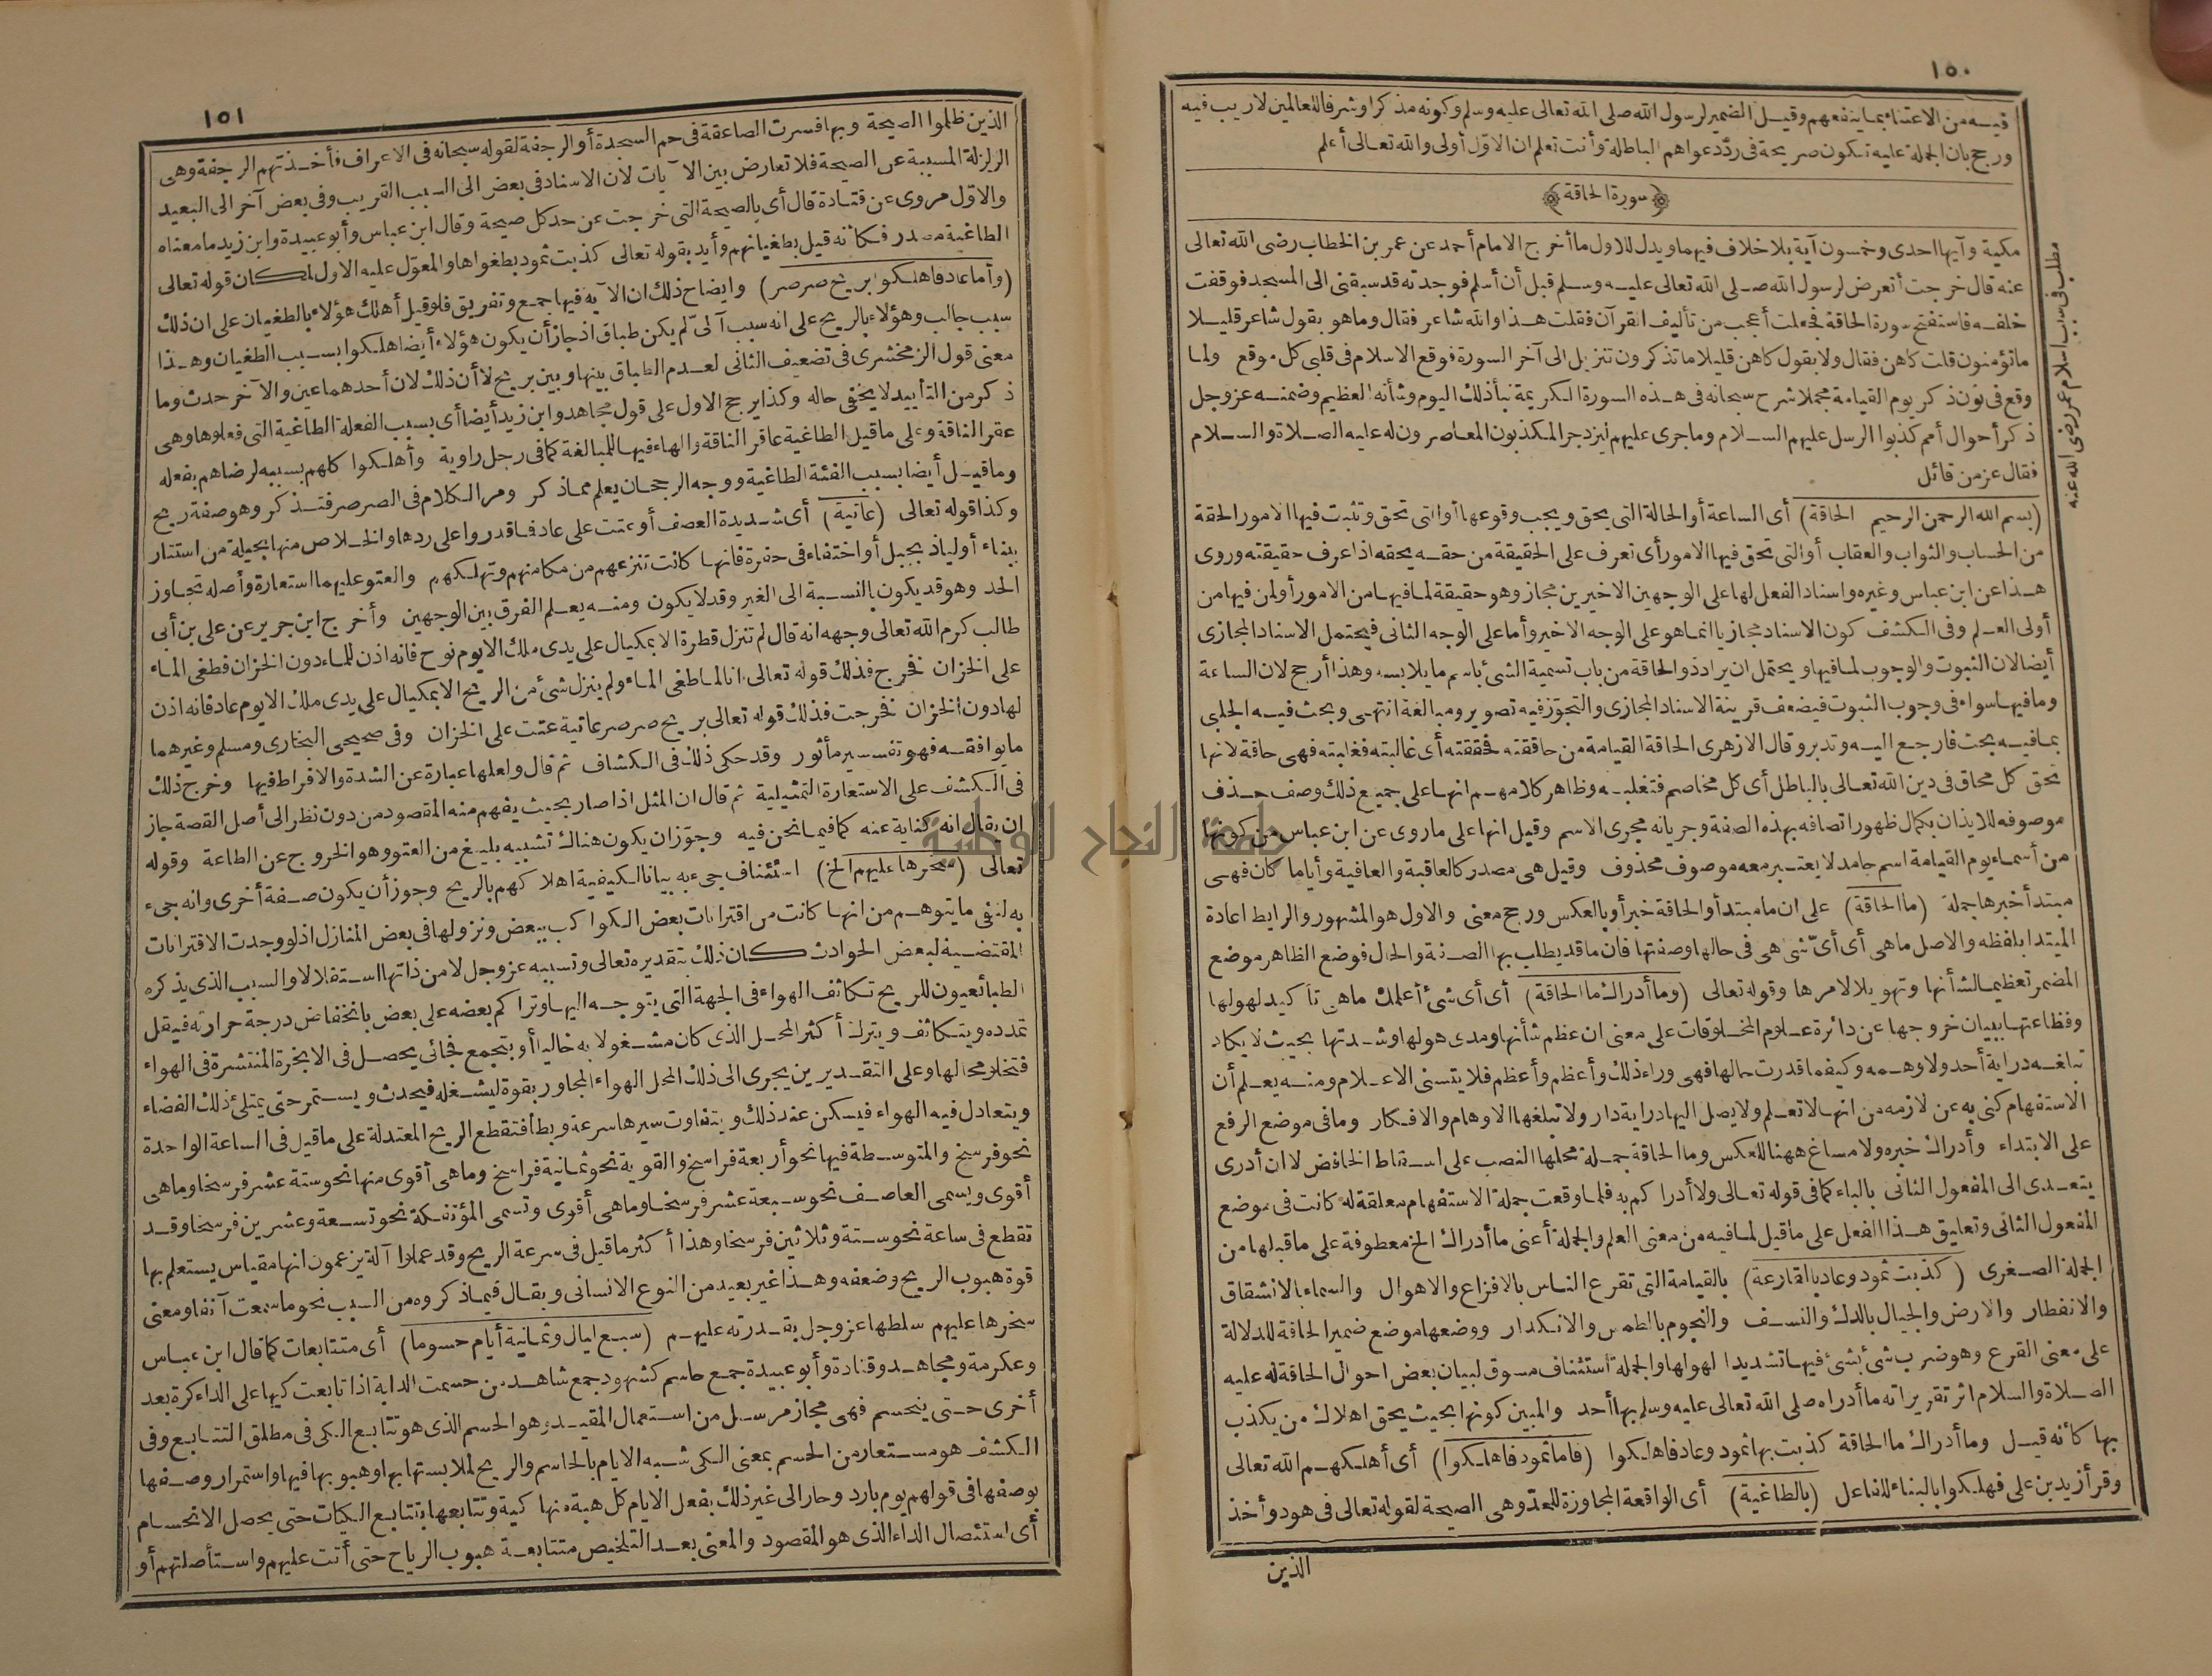 ١٥٠
فيه من الاعتناء بما ينفعهم وقيل الضمير لرسول الله صلى الله تعالى عليه وسلم وكونه مذكرا وشرفا للعالمين لا ريب فيه
ورجح بان الجملة عليه تكون صريحة في رد دعواهم الباطلة وأنت تعلم ان الاول أولى والله تعالى أعلم
﴿سورة الحاقة﴾
مكية وآيها احدى وخمسون آية بلا خلاف فيهما ويدل للاول ما أخرج الامام أحمد عن عمر بن الخطاب رضى الله تعالى
عنه قال خرجت أتعرض لرسول الله صلى الله تعالى عليه وسلم قبل أن أسلم فوجدته قد سبقنى الى المسجد فوقفت
خلفه فاستفتح سورة الحاقة فجعلت أعجب من تأليف القرآن فقلت هذا والله شاعر فقال وما هو بقول شاعر قليلا
ما تؤمنون قلت كاهن فقال ولا بقول كاهن قليلا ما تذكرون تنزيل الى آخر السورة فوقع الاسلام في قلبى كل موقع ولما
وقع في نون ذكر يوم القيامة مجملا شرح سبحانه في هذه السورة الكريمة نبأ ذلك اليوم وشأنه العظيم وضمنه عز وجل
ذكر أحوال أمم كذبوا الرسل عليهم السلام وما جرى عليهم ليزدجر المكذبون المعاصرون له عليه الصلاة والسلام
فقال عز من قائل
(بسم الله الرحمن الرحيم الحاقة) أى الساعة أو الحالة التى يحق ويجب وقوعها أو التى تحق وتثبت فيها الامور الحقة
من الحساب والثواب والعقاب أو التى تحق فيها الامور أى تعرف على الحقيقة من حقه يحقه اذا عرف حقيقته وروى
هذا عن ابن عباس وغيره واسناد الفعل لها على الوجهين الاخيرين مجاز وهو حقيقة لما فيها من الامور أو لمن فيها من
أولى العلم وفى الكشف كون الاسناد مجازيا انما هو على الوجه الاخير وأما على الوجه الثانى فيحتمل الاسناد المجازى
أيضا لان الثبوت والوجوب لما فيها ويحتمل ان يراد ذو الحاقة من باب تسمية الشئ باسم ما يلابسه وهذا أرجح لان الساعة
وما فيها سواء في وجوب الثبوت فيضعف قرينة الاسناد المجازى والتجوز فيه تصوير ومبالغة انتهى وبحث فيه الجلبى
بما فيه بحث فارجع اليه وتدبر وقال الازهرى الحاقة القيامة من حاققته فحققته أى غالبته فغلبته فهى حاقة لانها
تحق كل محاق في دين الله تعالى بالباطل أى كل مخاصم فتغلبه وظاهر كلامهم انها على جميع ذلك وصف حذف
موصوفه للايذان بكمال ظهور اتصافه بهذه الصفة وجريانه مجرى الاسم وقيل انها على ما روى عن ابن عباس من كونها
من أسماء يوم القيامة اسم جامد لا يعتبر معه موصوف محذوف وقيل هى مصدر كالعاقبة والعافية وأياما كان فهى
مبتدأ خبرها جملة (ما الحاقة) على ان ما مبتدأ والحاقة خبر أو بالعكس ورجح معنى والاول هو المشهور والرابط اعادة
المبتدا بلفظه والاصل ما هى أى أى شئ هى في حالها وصفتها فان ما قد يطلب بها الصفة والحال فوضع الظاهر موضع
المضمر تعظيما لشأنها وتهويلا لامرها وقوله تعالى (وما أدراك ما الحاقة) أى أى شئ أعلمك ما هى تأكيد لهولها
وفظاعتها ببيان خروجها عن دائرة علوم المخلوقات على معنى ان عظم شأنها ومدى هولها وشدتها بحيث لا يكاد
تبلغه دراية أحد ولا وهمه وكيفما قدرت حالها فهى وراء ذلك وأعظم وأعظم فلا يتسنى الاعلام ومنه يعلم أن
الاستفهام كنى به عن لازمه من انها لا تعلم ولا يصل اليها دراية دار ولا تبلغها الاوهام والافكار وما في موضع الرفع
على الابتداء وأدراك خبره ولا مساغ ههنا للعكس وما الحاقة جملة محلها النصب على اسقاط الخافض لان أدرى
يتعدى الى المفعول الثانى بالباء كما في قوله تعالى ولا أدراكم به فلما وقعت جملة الاستفهام معلقة له كانت في موضع
المفعول الثانى وتعليق هذا الفعل على ما قيل لما فيه من معنى العلم والجملة أعنى ما أدراك الخ معطوفة على ما قبلها من
الجملة الصغرى (كذبت ثمود وعاد بالقارعة) بالقيامة التى تقرع الناس بالافزاع والاهوال والسماء بالانشقاق
والانفطار والارض والجبال بالدك والنسف والنجوم بالطمس والانكدار ووضعها موضع ضمير الحاقة للدلالة
على معنى القرع وهو ضرب شئ بشئ فيها تشديدا لهولها والجملة استئناف مسوق لبيان بعض احوال الحاقة له عليه
الصلاة والسلام اثر تقرير انه ما أدراه صلى الله تعالى عليه وسلم بها أحد والمبين كونها بحيث يحق اهلاك من يكذب
بها كأنه قيل وما أدراك ما الحاقة كذبت بها ثمود وعاد فاهلكوا (فاما ثمود فاهلكوا) أى أهلكهم الله تعالى
وقرأ زيد بن على فهلكوا بالبناء للفاعل (بالطاغية) أى الواقعة المجاوزة للحد وهى الصيحة لقوله تعالى في هود وأخذ
الذين
مطلب في سبب اسلام عمر رضى الله عنه
١٥١
الذين ظلموا الصيحة وبها فسرت الصاعقة في حم السجدة أو الرجفة لقوله سبحانه في الاعراف فأخذتهم الرجفة وهى
الزلزلة المسببة عن الصيحة فلا تعارض بين الآيات لان الاسناد في بعض الى السبب القريب وفى بعض آخر الى البعيد
والاول مروى عن قتادة قال أى بالصيحة التى خرجت عن حد كل صيحة وقال ابن عباس وأبو عبيدة وابن زيد ما معناه
الطاغية مصدر فكأنه قيل بطغيانهم وأيد بقوله تعالى كذبت ثمود بطغواها والمعول عليه الاول لمكان قوله تعالى
(وأما عاد فاهلكوا بريح صرصر) وايضاح ذلك ان الآية فيها جمع وتفريق فلو قيل أهلك هؤلاء بالطغيان على ان ذلك
سبب جالب وهؤلاء بالريح على انه سبب آلى لم يكن طباق اذ جاز أن يكون هؤلاء أيضا هلكوا بسبب الطغيان وهذا
معنى قول الزمخشرى في تضعيف الثانى لعدم الطباق بينها وبين بريح لا أن ذلك لان أحدهما عين والآخر حدث وما
ذكر من التأييد لا يخفى حاله وكذا يرجح الاول على قول مجاهد وابن زيد أيضا أى بسبب الفعلة الطاغية التى فعلوها وهى
عقر الناقة وعلى ما قيل الطاغية عاقر الناقة والهاء فيها للمبالغة كما في رجل راوية وأهلكوا كلهم بسببه لرضاهم بفعله
وما قيل أيضا بسبب الفئة الطاغية ووجه الرجحان يعلم مما ذكر ومر الكلام في الصرصر فتذكر وهو صفة ريح
وكذا قوله تعالى (عاتية) أى شديدة العصف أو عتت على عاد فما قدروا على ردها والخلاص منها بحيلة من استتار
ببناء أو لياذ بجبل أو اختفاء في حفرة فانها كانت تنزعهم من مكامنهم وتهلكهم والعتو عليهما استعارة وأصله تجاوز
الحد وهو قد يكون بالنسبة الى الغير وقد لا يكون ومنه يعلم الفرق بين الوجهين وأخرج ابن جرير عن على بن أبى
طالب كرم الله تعالى وجهه انه قال لم تنزل قطرة الا بمكيال على يدى ملك الا يوم نوح فانه اذن للماء دون الخزان فطغى الماء
على الخزان فخرج فذلك قوله تعالى انا لما طغى الماء ولم ينزل شئ من الريح الا بمكيال على يدى ملك الا يوم عاد فانه اذن
لها دون الخزان فخرجت فذلك قوله تعالى بريح صرصر عاتية عتت على الخزان وفى صحيحى البخارى ومسلم وغيرهما
ما يوافقه فهو تفسير مأثور وقد حكى ذلك في الكشاف ثم قال ولعلها عبارة عن الشدة والافراط فيها وخرج ذلك
في الكشف على الاستعارة التمثيلية ثم قال ان المثل اذا صار بحيث يفهم منه المقصود من دون نظر الى أصل القصة جاز
ان يقال انه كناية عنه كما فيما نحن فيه وجوز ان يكون هناك تشبيه بليغ من العتو وهو الخروج عن الطاعة وقوله
تعالى (سخرها عليهم الخ) استئناف جىء به بيانا لكيفية اهلاكهم بالريح وجوز أن يكون صفة أخرى وانه جىء
به لنفى ما يتوهم من انها كانت من اقترانات بعض الكواكب ببعض ونزولها في بعض المنازل اذ لو وجدت الاقترانات
المقتضية لبعض الحوادث كان ذلك بتقديره تعالى وتسببه عز وجل لا من ذاتها استقلالا والسبب الذى يذكره
الطبائعيون للريح تكاثف الهواء في الجهة التى يتوجه اليها وتراكم بعضه على بعض بانخفاض درجة حرارته فيقل
تمدده ويتكاثف ويترك أكثر المحل الذى كان مشغولا به خاليا أو بتجمع فجائى يحصل في الابخرة المنتشرة في الهواء
فتخلو محالها وعلى التقديرين يجرى الى ذلك المحل الهواء المجاور بقوة ليشغله فيحدث ويستمر حتى يمتلئ ذلك الفضاء
ويتعادل فيه الهواء فيسكن عند ذلك ويتفاوت سيرها سرعة وبطأ فتقطع الريح المعتدلة على ما قيل في الساعة الواحدة
نحو فرسخ والمتوسطة فيها نحو أربعة فراسخ والقوية نحو ثمانية فراسخ وما هى أقوى منها نحو ستة عشر فرسخا وما هى
أقوى ويسمى العاصف نحو سبعة عشر فرسخا وما هى أقوى وتسمى المؤتفكة نحو تسعة وعشرين فرسخا وقد
تقطع في ساعة نحو ستة وثلاثين فرسخا وهذا أكثر ما قيل في سرعة الريح وقد عملوا آلة يزعمون انها مقياس يستعلم بها
قوة هبوب الريح وضعفه وهذا غير بعيد من النوع الانسانى ويقال فيما ذكروه من السبب نحو ما سمعت آنفا ومعنى
سخرها عليهم سلطها عز وجل بقدرته عليهم (سبع ليال وثمانية أيام حسوما) أى متتابعات كما قال ابن عباس
وعكرمة ومجاهد وقتادة وأبو عبيدة جمع حاسم كشهود جمع شاهد من حسمت الدابة اذا تابعت كيها على الداء كرة بعد
أخرى حتى ينحسم فهى مجاز مرسل من استعمال المقيد وهو الحسم الذى هو تتابع الكى في مطلق التتابع وفى
الكشف هو مستعار من الحسم بمعنى الكى شبه الايام بالحاسم والريح لملابستها بها وهبوبها فيها واستمرار وصفها
بوصفها في قولهم يوم بارد وحار الى غير ذلك بفعل الايام كل هبة منها كية وتتابعها بتتابع الكيات حتى يحصل الانحسام
أى استئصال الداء الذى هو المقصود والمعنى بعد التلخيص متتابعة هبوب الرياح حتى أتت عليهم واستأصلتهم أو